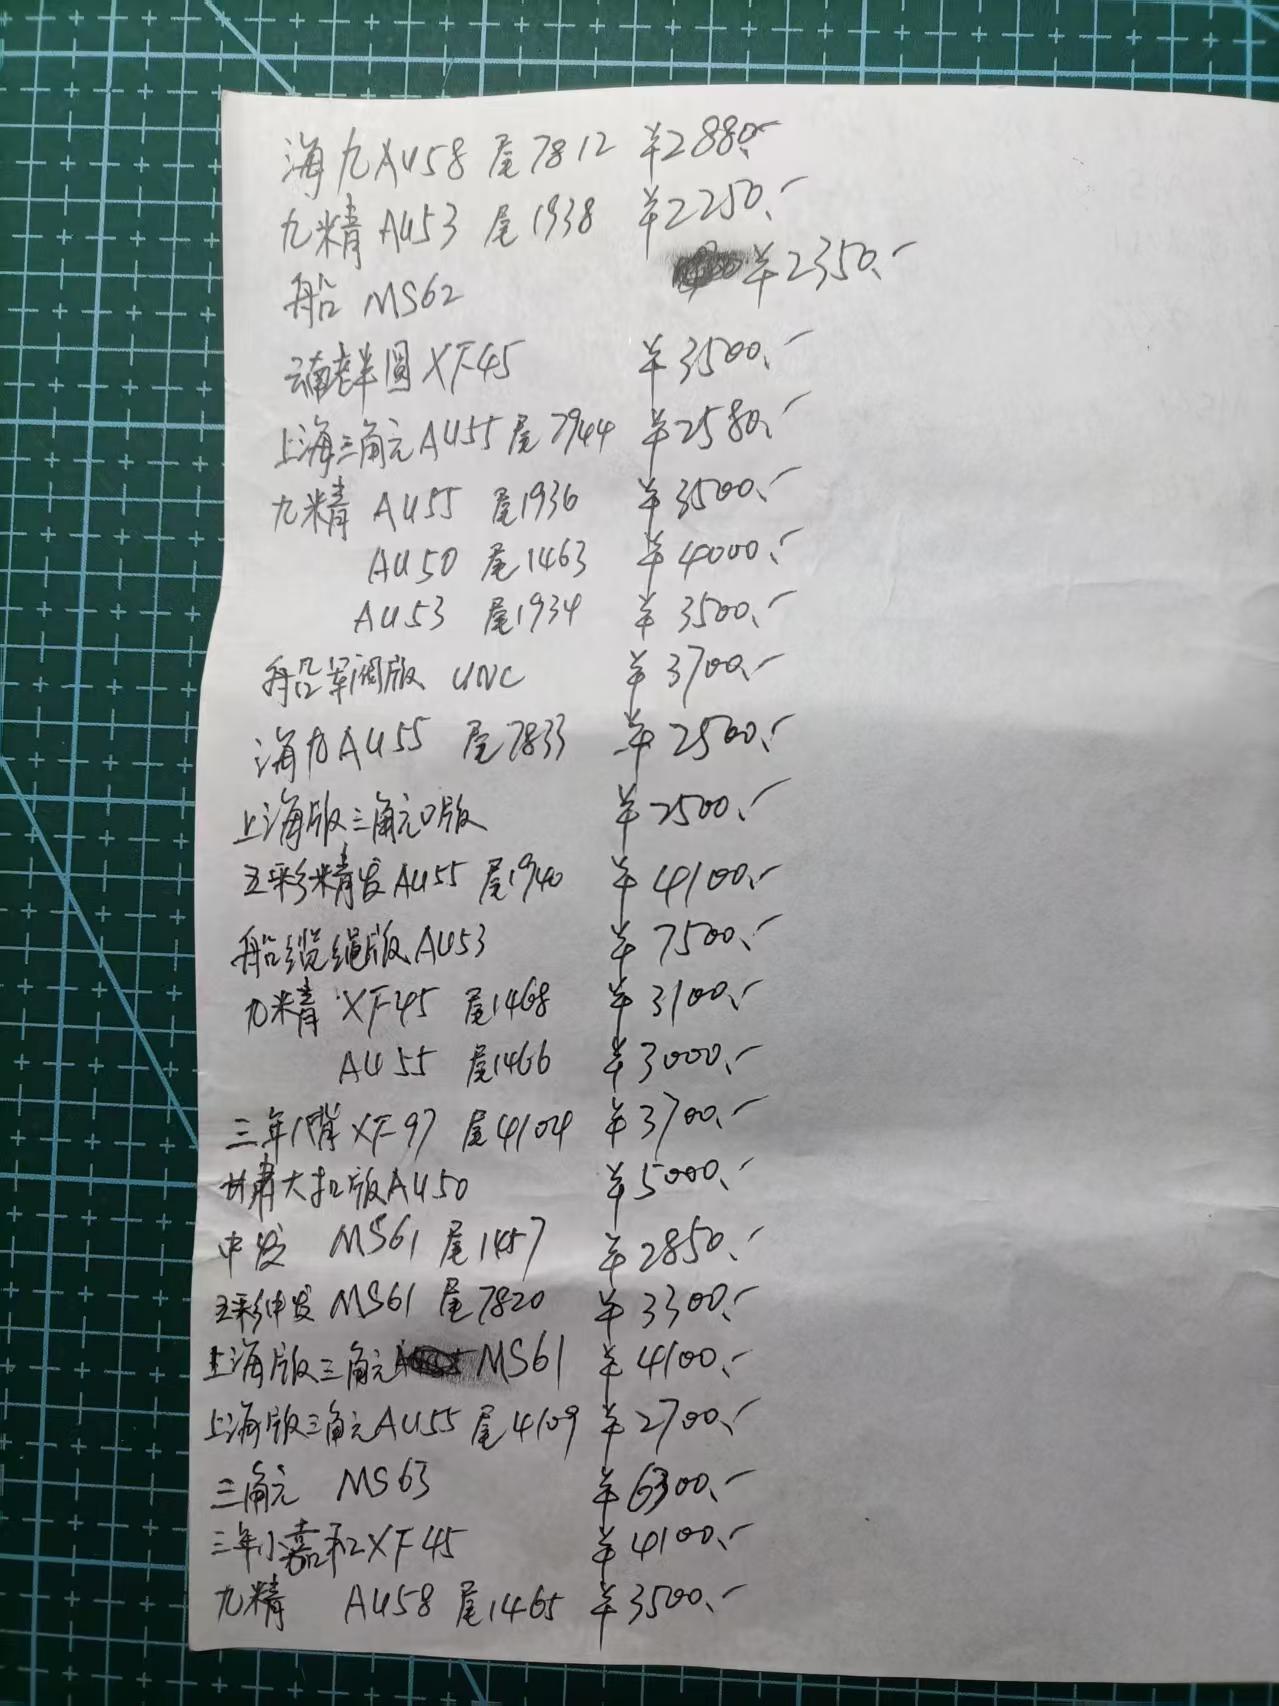 海九AU58 尾7812 ¥2880.-
九精 AU53 尾1938 ¥2250.-
船 MS62 ¥2350.-
云南老半圆 XF45 ¥3500.-
上海三角元AU55 尾7944 ¥2580.-
九精 AU55 尾1936 ¥3500.-
AU50 尾1463 ¥4000.-
AU53 尾1934 ¥3500.-
船军阀版 UNC ¥3700.-
海九AU55 尾7833 ¥2500.-
上海版三角元O版 ¥2500.-
五彩精发AU55 尾1940 ¥4100.-
船缆绳版AU53 ¥7500.-
九精 XF45 尾1468 ¥3100.-
AU55 尾1466 ¥3000.-
三年 XF97 尾4104 ¥3700.-
甘肃大扣版AU50 ¥5000.-
中发 MS61 尾1457 ¥2850.-
五彩中发 MS61 尾7820 ¥3300.-
上海版三角元 MS61 ¥4100.-
上海版三角元AU55 尾4109 ¥2700.-
三角元 MS63 ¥6300.-
三年小嘉禾XF45 ¥4100.-
九精 AU58 尾1465 ¥3500.-